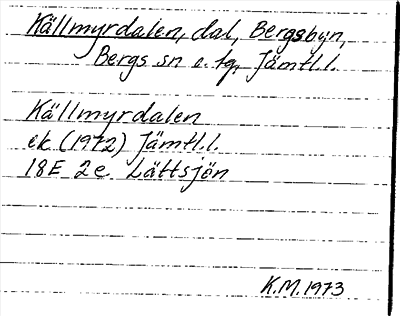 Källmyrdalen, dal, Bergsbyn,
Bergs sn o. tg, Jämtl.l.
Källmyrdalen
ek (1972) Jämtl.l.
18E 2e Lättsjön
K.M. 1973